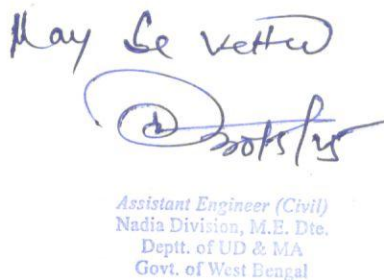 May be vetted
30/5/25
Assistant Engineer (Civil)
Nadia Division, M.E. Dte.
Deptt. of UD & MA
Govt. of West Bengal